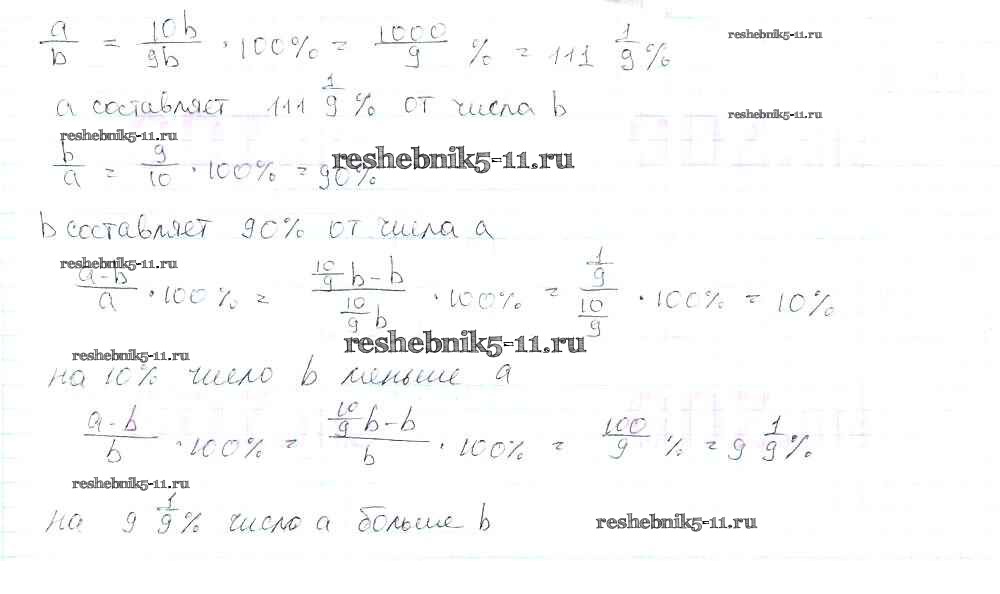 a/b = 10b/9b · 100% = 1000/9 % = 111 1/9 %
reshebnik5-11.ru
a составляет 111 1/9 % от числа b
reshebnik5-11.ru
reshebnik5-11.ru
b/a = 9/10 · 100% = 90%
reshebnik5-11.ru
b составляет 90% от числа a
reshebnik5-11.ru
(a-b)/a · 100% = (10/9 b - b)/(10/9 b) · 100% = (1/9)/(10/9) · 100% = 10%
reshebnik5-11.ru
reshebnik5-11.ru
на 10% число b меньше a
(a-b)/b · 100% = (10/9 b - b)/b · 100% = 100/9 % = 9 1/9 %
reshebnik5-11.ru
на 9 1/9 % число a больше b
reshebnik5-11.ru